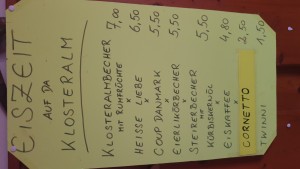 EISZEIT
AUF DA
KLOSTERALM
KLOSTERALMBECHER 7,00
MIT RUMFRÜCHTE
HEISSE LIEBE 6,50
COUP DANMARK 5,50
EIERLIKÖRBECHER 5,50
STEIRERBECHER 5,50
MIT
KÜRBISKERNÖL
EISKAFFEE 4,80
CORNETTO 2,50
TWINNI 1,50